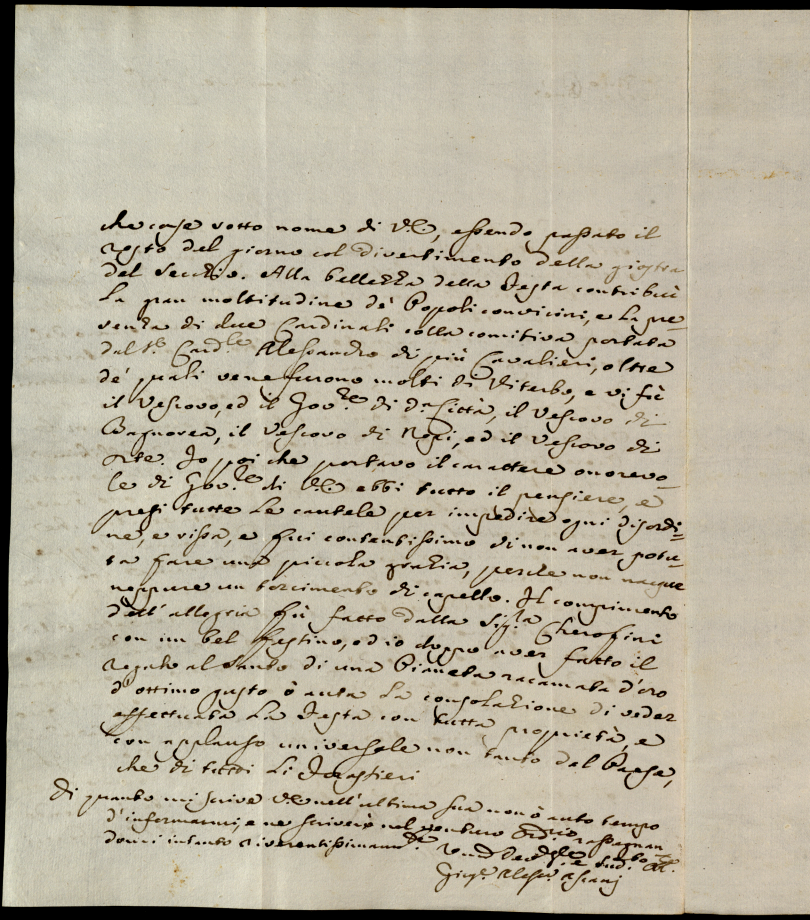 che corse sotto nome di V.E., essendo passato il
resto del giorno col divertimento della giostra
del Secchio. Alla bellezza della Festa contribuì
la gran moltitudine de' Popoli convicini, e la pre-
senza di due Cardinali colla comitiva portata
dal Sr. Card.le Alessandro di più Cavalieri, oltre
de' quali vene furono molti di Viterbo, e vi fù
il Vescovo, ed il Gov.re di da. Città, il Vescovo di
Bagnorea, il Vescovo di Nepi, ed il Vescovo di
Orte. Io poi che portavo il carattere onorevo-
le di Gov.re di V.E. ebbi tutto il pensiere, e
presi tutte le cautele per impedire ogni disordi-
ne, e rissa, e fui contentissimo di non aver potu-
ta fare una piccola grazia, perche non nacque
neppure un torcimento di capello. Il compimento
dell'allegria fù fatto dalla Sig.ra Cherofini
con un bel festino, ed io doppo aver fatto il
regalo al Santo di una Pianeta racamata d'oro
d'ottimo gusto ò auta la consolazione di veder
effettuata la Festa con tutta proprietà, e
con applauso universale non tanto del Paese,
che di tutti li Forastieri
Di quanto mi scrive V.E. nell'ultima sua non ò auto tempo
d'informarmi, e ne scriverò nel venturo Ord.rio rassegnan
domi intanto riverentissimam.te